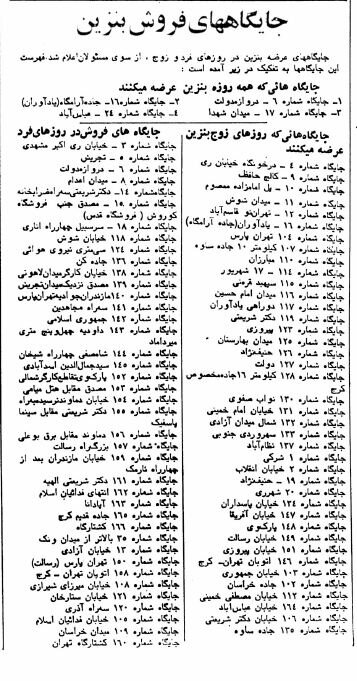 جایگاههای فروش بنزین
جایگاههای عرضه بنزین در روزهای فرد و زوج ، از سوی مسئولان اعلام شد. فهرست
این جایگاهها به تفکیک در زیر آمده است :
جایگاه هائی که همه روزه بنزین عرضه میکنند
۱- جایگاه شماره ۶ - دروازه دولت
۲- جایگاه شماره ۱۶- جاده آرامگاه (یادآوران)
۳- جایگاه شماره ۱۷ - میدان شهدا
۴- جایگاه شماره ۲۴ - عباس‌آباد
جایگاه‌هائی که روزهای زوج بنزین
عرضه میکنند
جایگاه شماره ۴ - درخونگاه خیابان ری
جایگاه شماره ۹ - کالج حافظ
جایگاه شماره ۱۰ - پل امامزاده معصوم
جایگاه شماره ۱۱ - میدان شوش
جایگاه شماره ۱۲ - تهران‌نو قاسم‌آباد
جایگاه شماره ۱۶ - یادآوران (جاده آرامگاه)
جایگاه شماره ۱۰۴ تهران پارس
جایگاه شماره ۱۰۷ کیلومتر ۱۰ جاده ساوه
جایگاه شماره ۱۱۰ مبارزان
جایگاه شماره ۱۱۴ - ۱۷ شهریور
جایگاه شماره ۱۱۵ سپهبد قرنی
جایگاه شماره ۱۱۶ میدان امام حسین
جایگاه شماره ۱۱۷ دوراهی یادآوران
جایگاه شماره ۱۱۹ دکتر شریعتی
جایگاه شماره ۱۲۳ پیروزی
جایگاه شماره ۱۲۵ میدان بهارستان
جایگاه شماره ۱۲۶ حنیف‌نژاد
جایگاه شماره ۱۲۷ دولت
جایگاه شماره ۱۲۸ کیلومتر ۱۶ جاده مخصوص
کرج
جایگاه شماره ۱۳۰ نواب صفوی
جایگاه شماره ۱۳۱ خیابان امام خمینی
جایگاه شماره ۱۳۲ شمال میدان آزادی
جایگاه شماره ۱۳۳ سهروردی جنوبی
جایگاه شماره ۱۳۷ نظام‌آباد
جایگاه شماره ۱ شرکتی
جایگاه شماره ۲ خیابان انقلاب
جایگاه شماره ۱۹ - حنیف‌نژاد
جایگاه شماره ۲۰ شهرری
جایگاه شماره ۱۳۴ خیابان پاسداران
جایگاه شماره ۱۴۷ خیابان آفریقا
جایگاه شماره ۱۴۸ پارک‌وی
جایگاه شماره ۱۴۹ خیابان رسالت
جایگاه شماره ۱۵۱ خیابان پیروزی
جایگاه شماره ۱۴۶ اتوبان تهران- کرج
جایگاه شماره ۱۰۳ خیابان جمهوری
جایگاه شماره ۱۰۲ جاده خراسان
جایگاه شماره ۱۱۲ خیابان مصطفی خمینی
جایگاه شماره ۱۶۴ خیابان عباس‌آباد
جایگاه شماره ۱۰۶ خیابان دکتر شریعتی
جایگاه شماره ۱۳۵ جاده ساوه
جایگاه های فروش در روزهای فرد
جایگاه شماره ۳ - خیابان ری اکبر مشهدی
جایگاه شماره ۵ - تجریش
جایگاه شماره ۶ - دروازه دولت
جایگاه شماره ۸ - میدان اعدام
جایگاه شماره ۱۴- دکتر شریعتی سه‌راه ضرابخانه
جایگاه شماره ۱۵ - مصدق جنب فروشگاه
کوروش (فروشگاه قدس)
جایگاه شماره ۱۸ - سرسبیل چهارراه اناری
جایگاه شماره ۱۱۸ خیابان شوش
جایگاه شماره ۱۲۴ سی‌متری نیروی هوائی
جایگاه شماره ۱۳۶ جاده کن
جایگاه شماره ۱۳۸ خیابان کارگر میدان لاهوتی
جایگاه شماره ۱۳۹ مصدق نزدیک میدان تجریش
جایگاه شماره ۱۴۰ مازندران جوادیه تهران‌پارس
جایگاه شماره ۱۴۱ سه‌راه مجاهدین
جایگاه شماره ۱۴۲ جمهوری اسلامی
جایگاه شماره ۱۴۳ داودیه چهل و پنج متری
میرداماد
جایگاه شماره ۱۴۴ شامصفی چهارراه شیخان
جایگاه شماره ۱۴۵ سیدجمال‌الدین اسدآبادی
جایگاه شماره ۱۵۲ پارک‌وی تقاطع کارگر شمالی
جایگاه شماره ۱۵۳ مصدق مقابل هتل میامی
جایگاه شماره ۱۵۴ خیابان دماوند نرسیده به سه‌راه
جایگاه شماره ۱۵۵ دکتر شریعتی مقابل سینما
پاسفیک
جایگاه شماره ۱۵۶ دماوند مقابل برق بوعلی
جایگاه شماره ۱۵۷ بزرگراه رسالت
جایگاه شماره ۱۵۹ خیابان مازندران بعد از
چهارراه نارمک
جایگاه شماره ۱۶۱ دکتر شریعتی الهیه
جایگاه شماره ۱۶۲ انتهای فدائیان اسلام
جایگاه شماره ۱۶۳ آپادانا
جایگاه شماره ۱۶۵ جاده قدیم کرج
جایگاه شماره ۱۶۶ کشتارگاه
جایگاه شماره ۳۵ بالاتر از میدان ونک
جایگاه شماره ۱۳ خیابان آزادی
جایگاه شماره ۱۵۰ تهران پارس (رسالت)
جایگاه شماره ۱۵۸ اتوبان تهران - کرج
جایگاه شماره ۱۰۸ خیابان میرزای شیرازی
جایگاه شماره ۱۲۱ خیابان ستارخان
جایگاه شماره ۱۲۰ سه‌راه آذری
جایگاه شماره ۱۰۵ خیابان فدائیان اسلام
جایگاه شماره ۱۰۹ میدان خراسان
جایگاه شماره ۱۶۰ کشتارگاه تهران